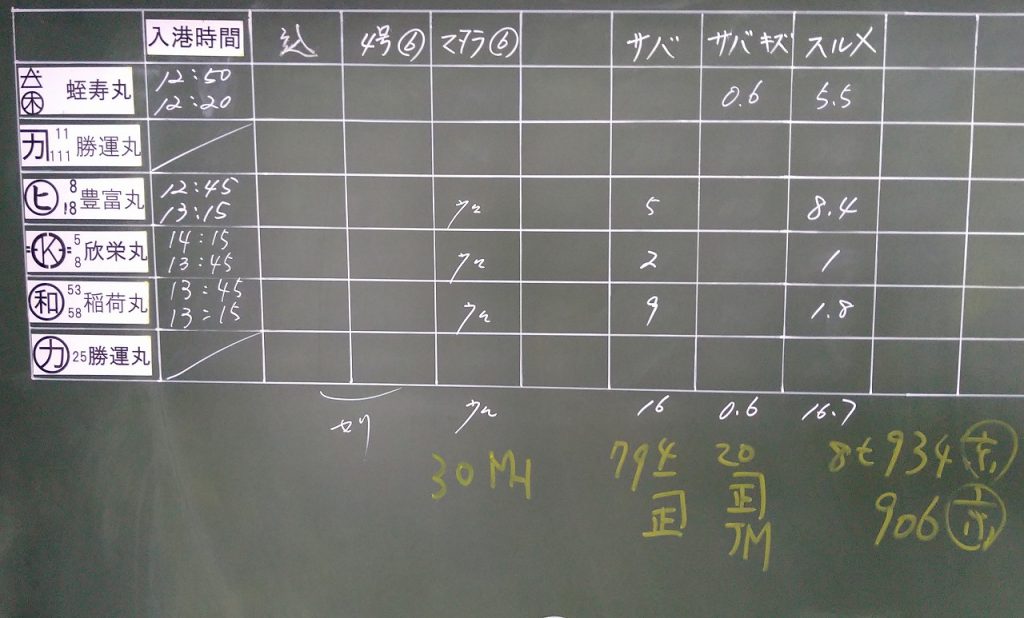 入港時間 込 4号⑥ マダラ⑥ サバ サバキズ スルメ
蛭寿丸 12:50 12:20 0.6 5.5
カ 11 111 勝運丸
ヒ 8 18 豊富丸 12:45 13:15 5 8.4
K 5 8 欣栄丸 14:15 13:45 2 1
和 53 58 稲荷丸 13:45 13:15 9 1.8
カ 25 勝運丸
セリ 16 0.6 16.7
30 MH 794 20 8t 934
正 正 906
JM